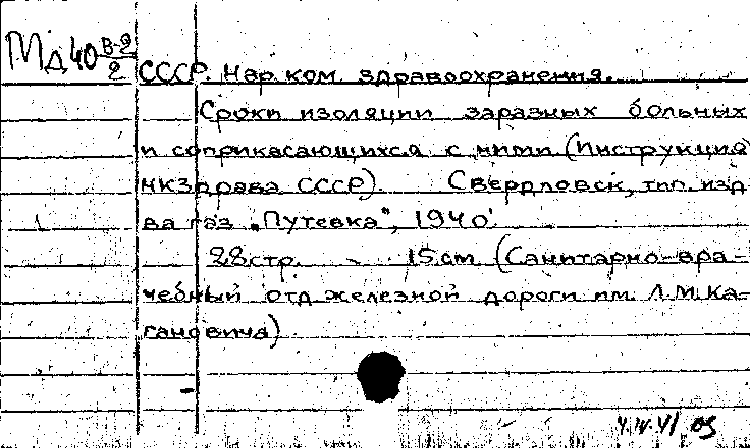 Мд40 В-2/2
СССР. Нар. ком. здравоохранения.
Сроки изоляции заразных больных
и соприкасающихся с ними (Инструкция
НКЗдрава СССР). Свердловск, тип. изд
ва газ „Путевка", 1940.
28 стр. 15 см. (Санитарно-вра-
чебный отд железной дороги им. Л.М. Ка-
гановича)